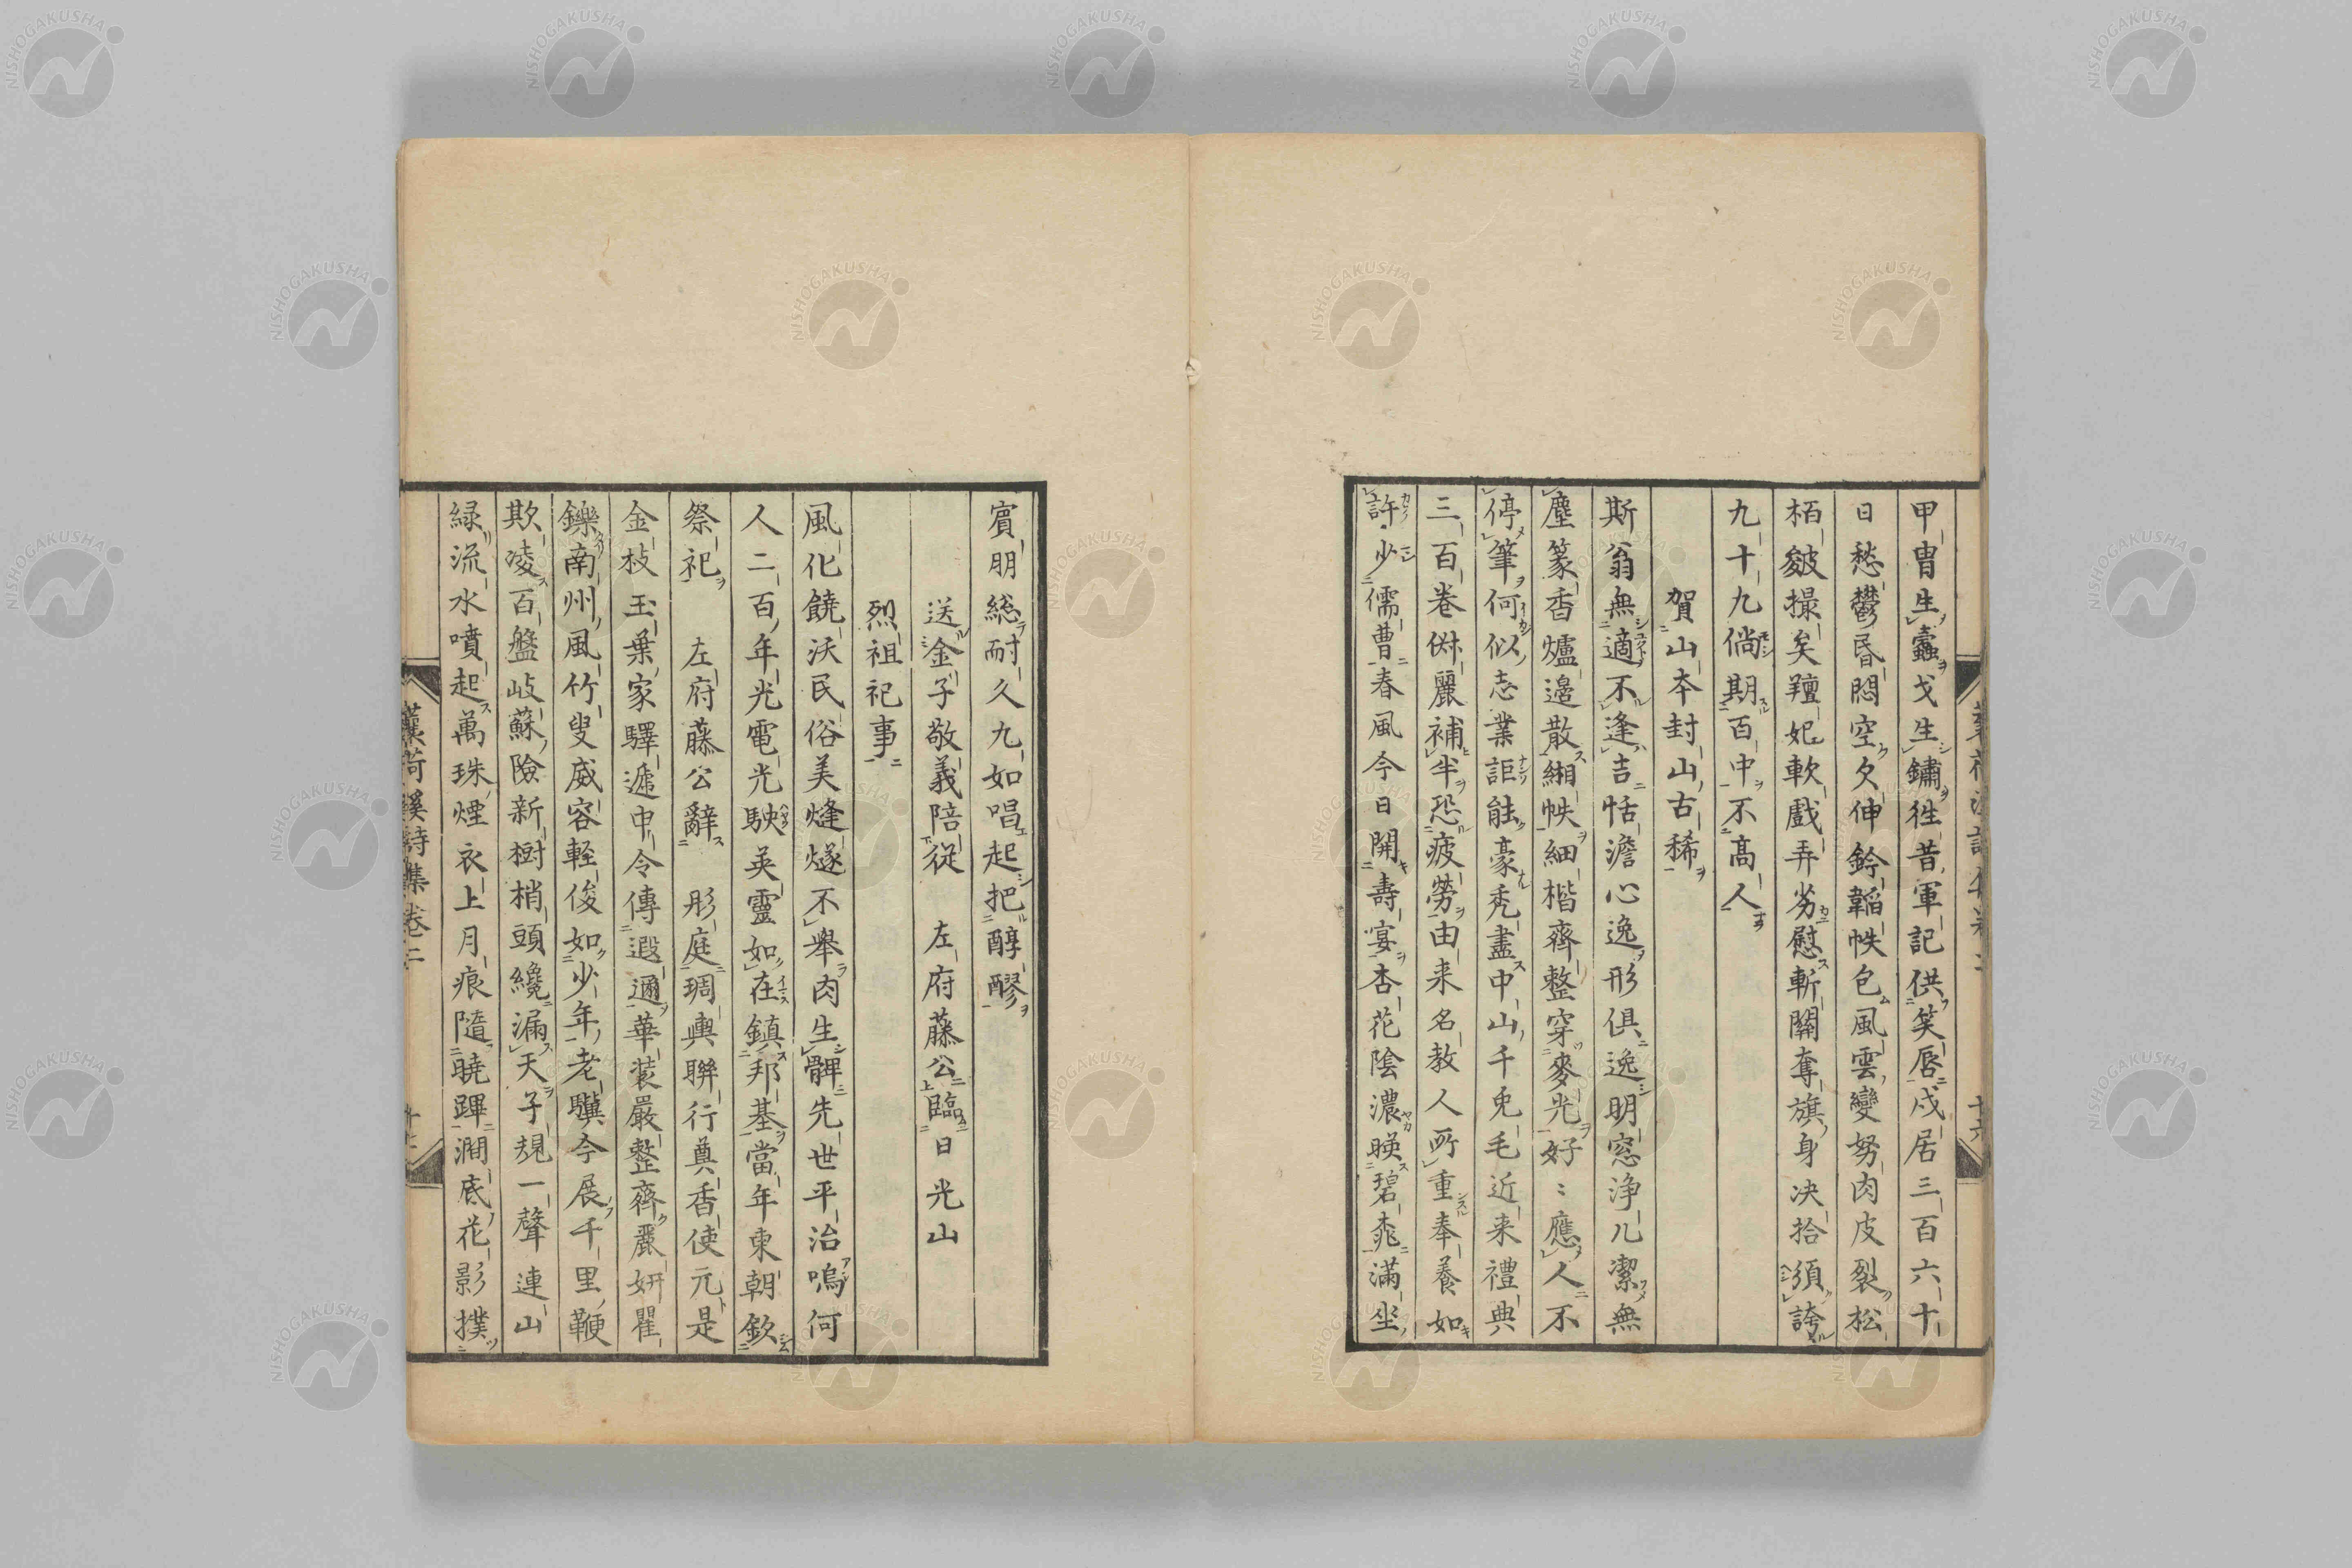 甲冑生蟣蠹戈生鏽徃昔軍記供笑唇戍居三百六十
日愁鬱昏悶空欠伸鈐韜帙包風雲變努肉皮裂松
栢皴撮矣羶妃軟戲弄劣慰斬關奪旗身决拾須誇
九十九倘期百中不髙人
賀山夲封山古稀
斯翁無適不逢吉恬澹心逸形俱逸明窓浄几潔無
塵篆香爐邉散緗帙細楷齊整穿麥光好〻應人不
停筆何似志業詎能豪禿盡中山千兎毛近来禮典
三百巻倂麗補半恐疲勞由来名教人所重奉養如
許少儒曹春風今日開壽宴杏花陰濃暎碧桃滿坐
賓朋総耐久九如唱起把醇醪
送金子敬義陪従 左府藤公臨日光山
烈祖祀事
風化饒沃民俗美熢燧不舉肉生髀先世平治嗚何
人二百年光電光駛英靈如在鎮邦基當年東朝欽
祭祀 左府藤公辭 彤庭琱輿聯行奠香使元是
金枝玉葉家驛遞中令傳遐邇華装嚴整齊麗妍瞿
鑠南州風竹叟威容輕俊如少年老驥今展千里鞭
欺凌百盤岐蘇險新樹梢頭纔漏天子規一聲連山
緑流水噴起萬珠煙衣上月痕隨曉蹕澗底花影撲
詩集巻二
十六
NISHOGAKUSHA